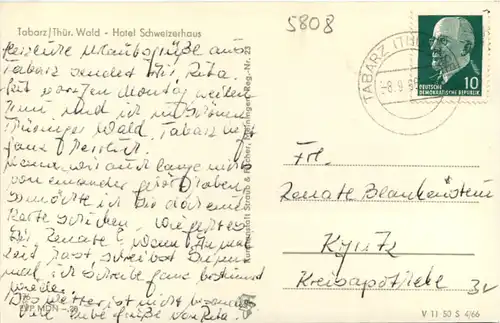 Tabarz/Thür. Wald - Hotel Schweizerhaus
5808
Herzliche Urlaubsgrüße aus
Tabarz sendet Dir Rita.
Seit vorigen Montag weilen
nun und ich im schönen
Thüringer Wald. Tabarz
ganz herrlich.
wir auch lange nichts
voneinander gehört haben,
so möchte ich Dir doch eine
Karte schreiben. Wie geht es
Dir, Renate? Wenn Du mal
Zeit hast, schreibst Du mir
mal, ich schreibe ganz bestimmt
wieder.
Das Wetter ist nicht besonders
Viele liebe Grüße von Rita.
EVP MDN
Kunstanstalt Straub & Fischer, Meiningen Reg.-Nr. 23
TABARZ (TH
-8.9.
DEUTSCHE
DEMOKRATISCHE REPUBLIK
10
Frl.
Renate Blankenstein
Kyritz
Kreisapotheke
V 11 50 S 4/66